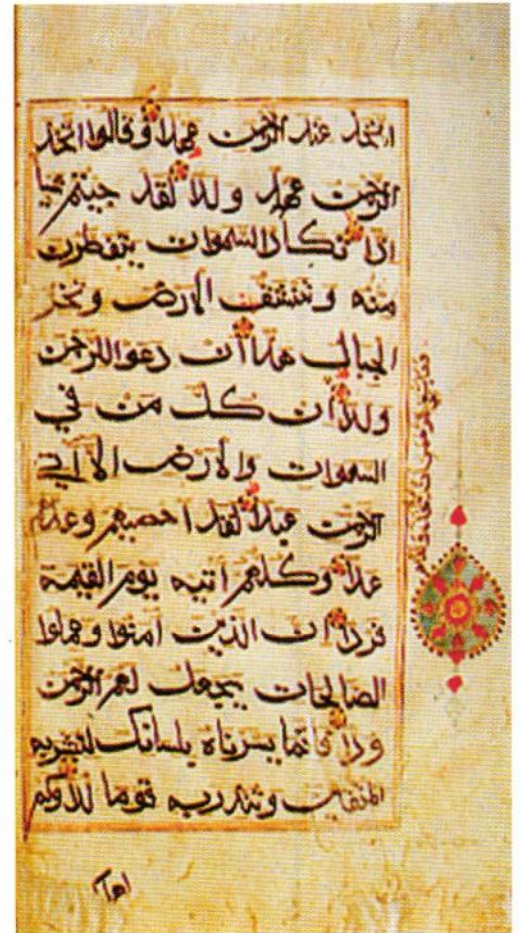 اتخذ عند الرحمن عهدا وقالوا اتخذ
الرحمن عهد ولدا لقد جيتم شيا
ادا تكاد السموات يتفطرن
منه وتنشق الارض وتخر
الجبال هدا ان دعوا للرحمن
ولدا ان كل من في
السموات والارض الا اتي
الرحمن عبدا لقد احصيهم وعدهم
عدا وكلهم اتيه يوم القيمة
فردا ان الذين امنوا وعملوا
الصالحات سيجعل لهم الرحمن
ودا فانما يسرناه بلسانك لتبشر به
المتقين وتنذر به قوما لدا وكم
وما ينبغي للرحمن ان يتخذ ولدا